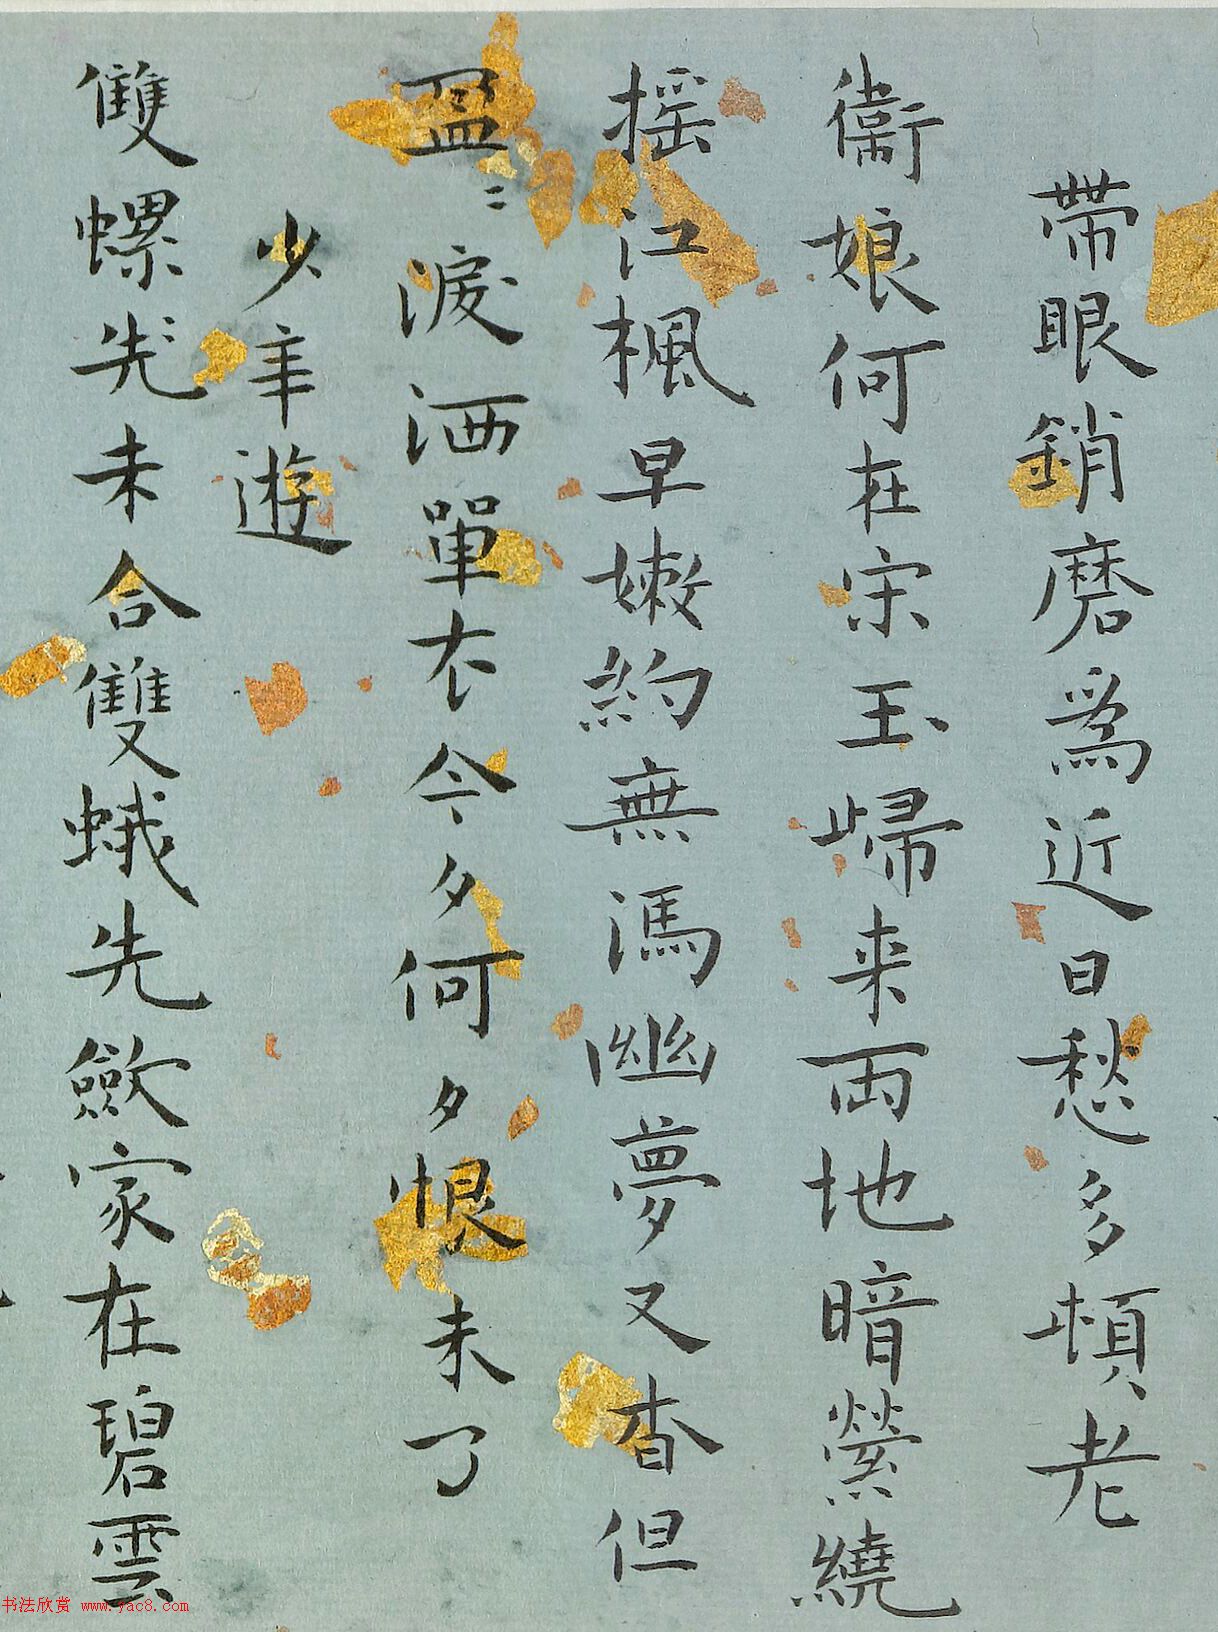 帶眼銷磨為近日愁多頓老
衛娘何在宋玉歸来両地暗縈繞
揺江楓早嫩約無馮幽夢又杳但
盈〻淚洒單衣今夕何夕恨未了
少年遊
雙螺先未合雙蛾先歛家在碧雲
书法欣赏 www.yac8.com